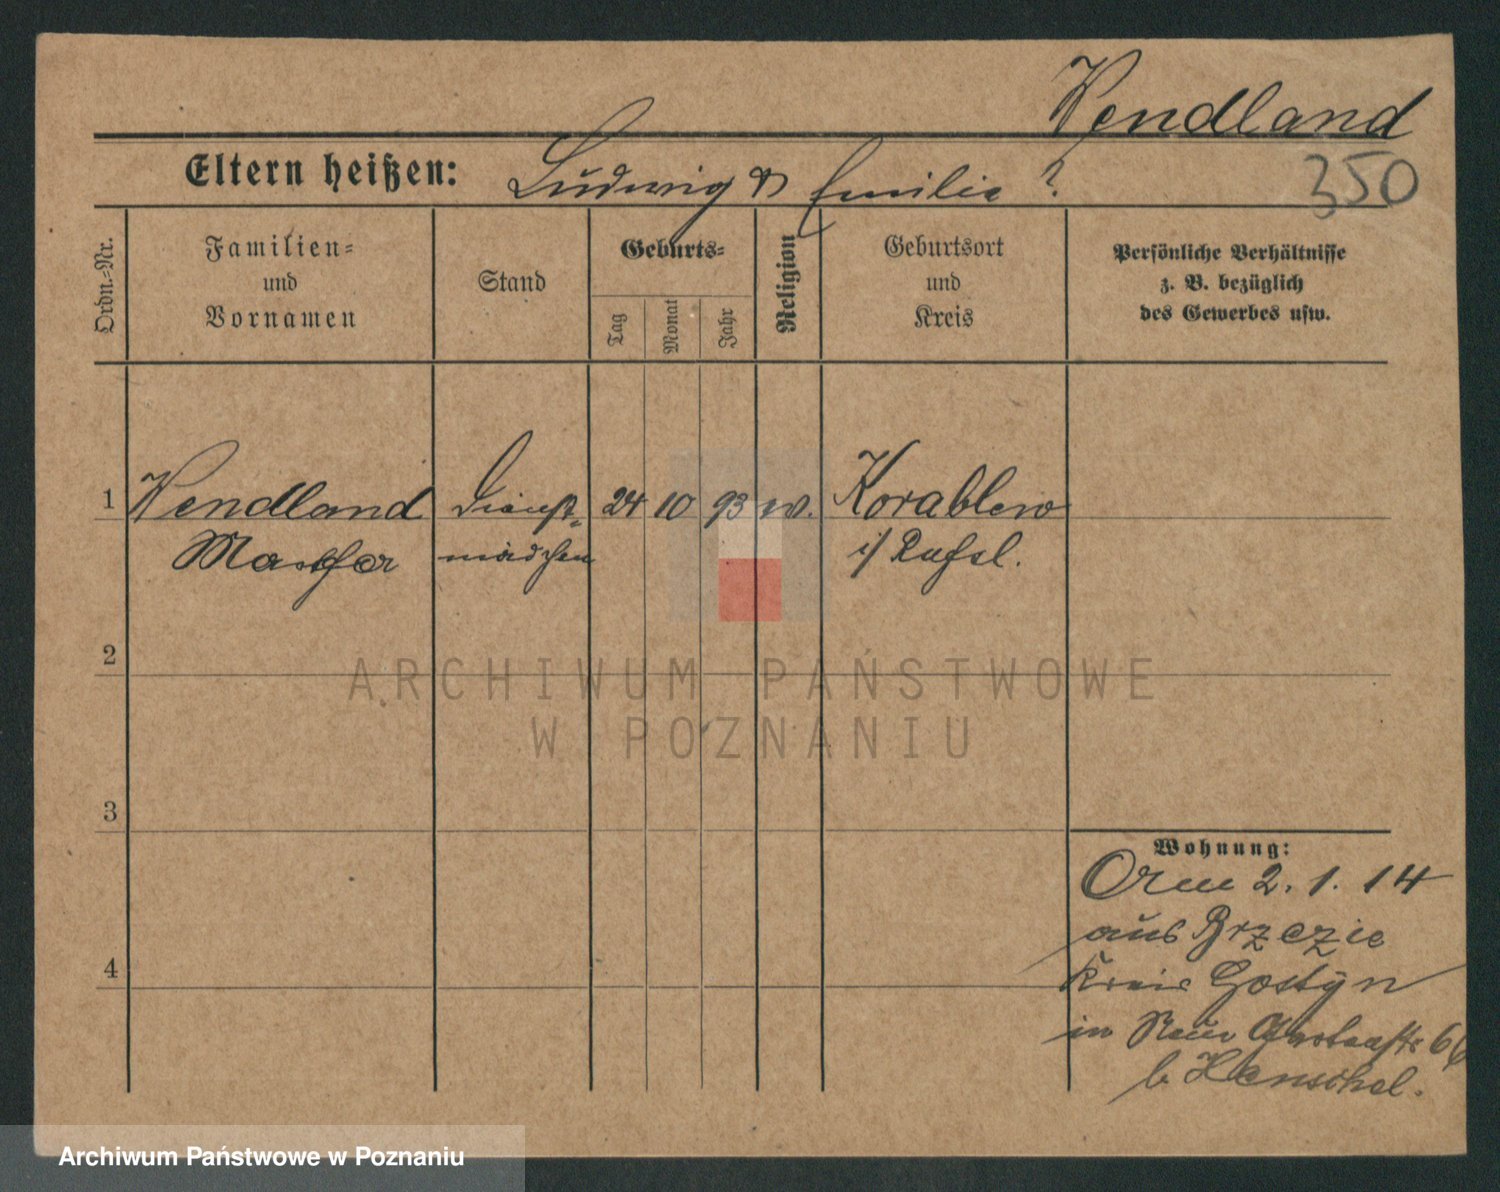 Wendland
350
Eltern heißen: Ludwig & Emilie ?
Ordn.-Nr.
Familien-
und
Vornamen
Stand
Geburts-
Tag
Monat
Jahr
Religion
Geburtsort
und
Kreis
Persönliche Verhältnisse
z. B. bezüglich
des Gewerbes usw.
1
Wendland
Martha
Dienst-
mädchen
24
10
93
ev.
Korablew
i/ Rußl.
2
3
4
Wohnung:
2. 1. 14
aus Brzezie
Kreis Gostyn
in Neue 66
b Henschel.
ARCHIWUM PAŃSTWOWE
W POZNANIU
Archiwum Państwowe w Poznaniu